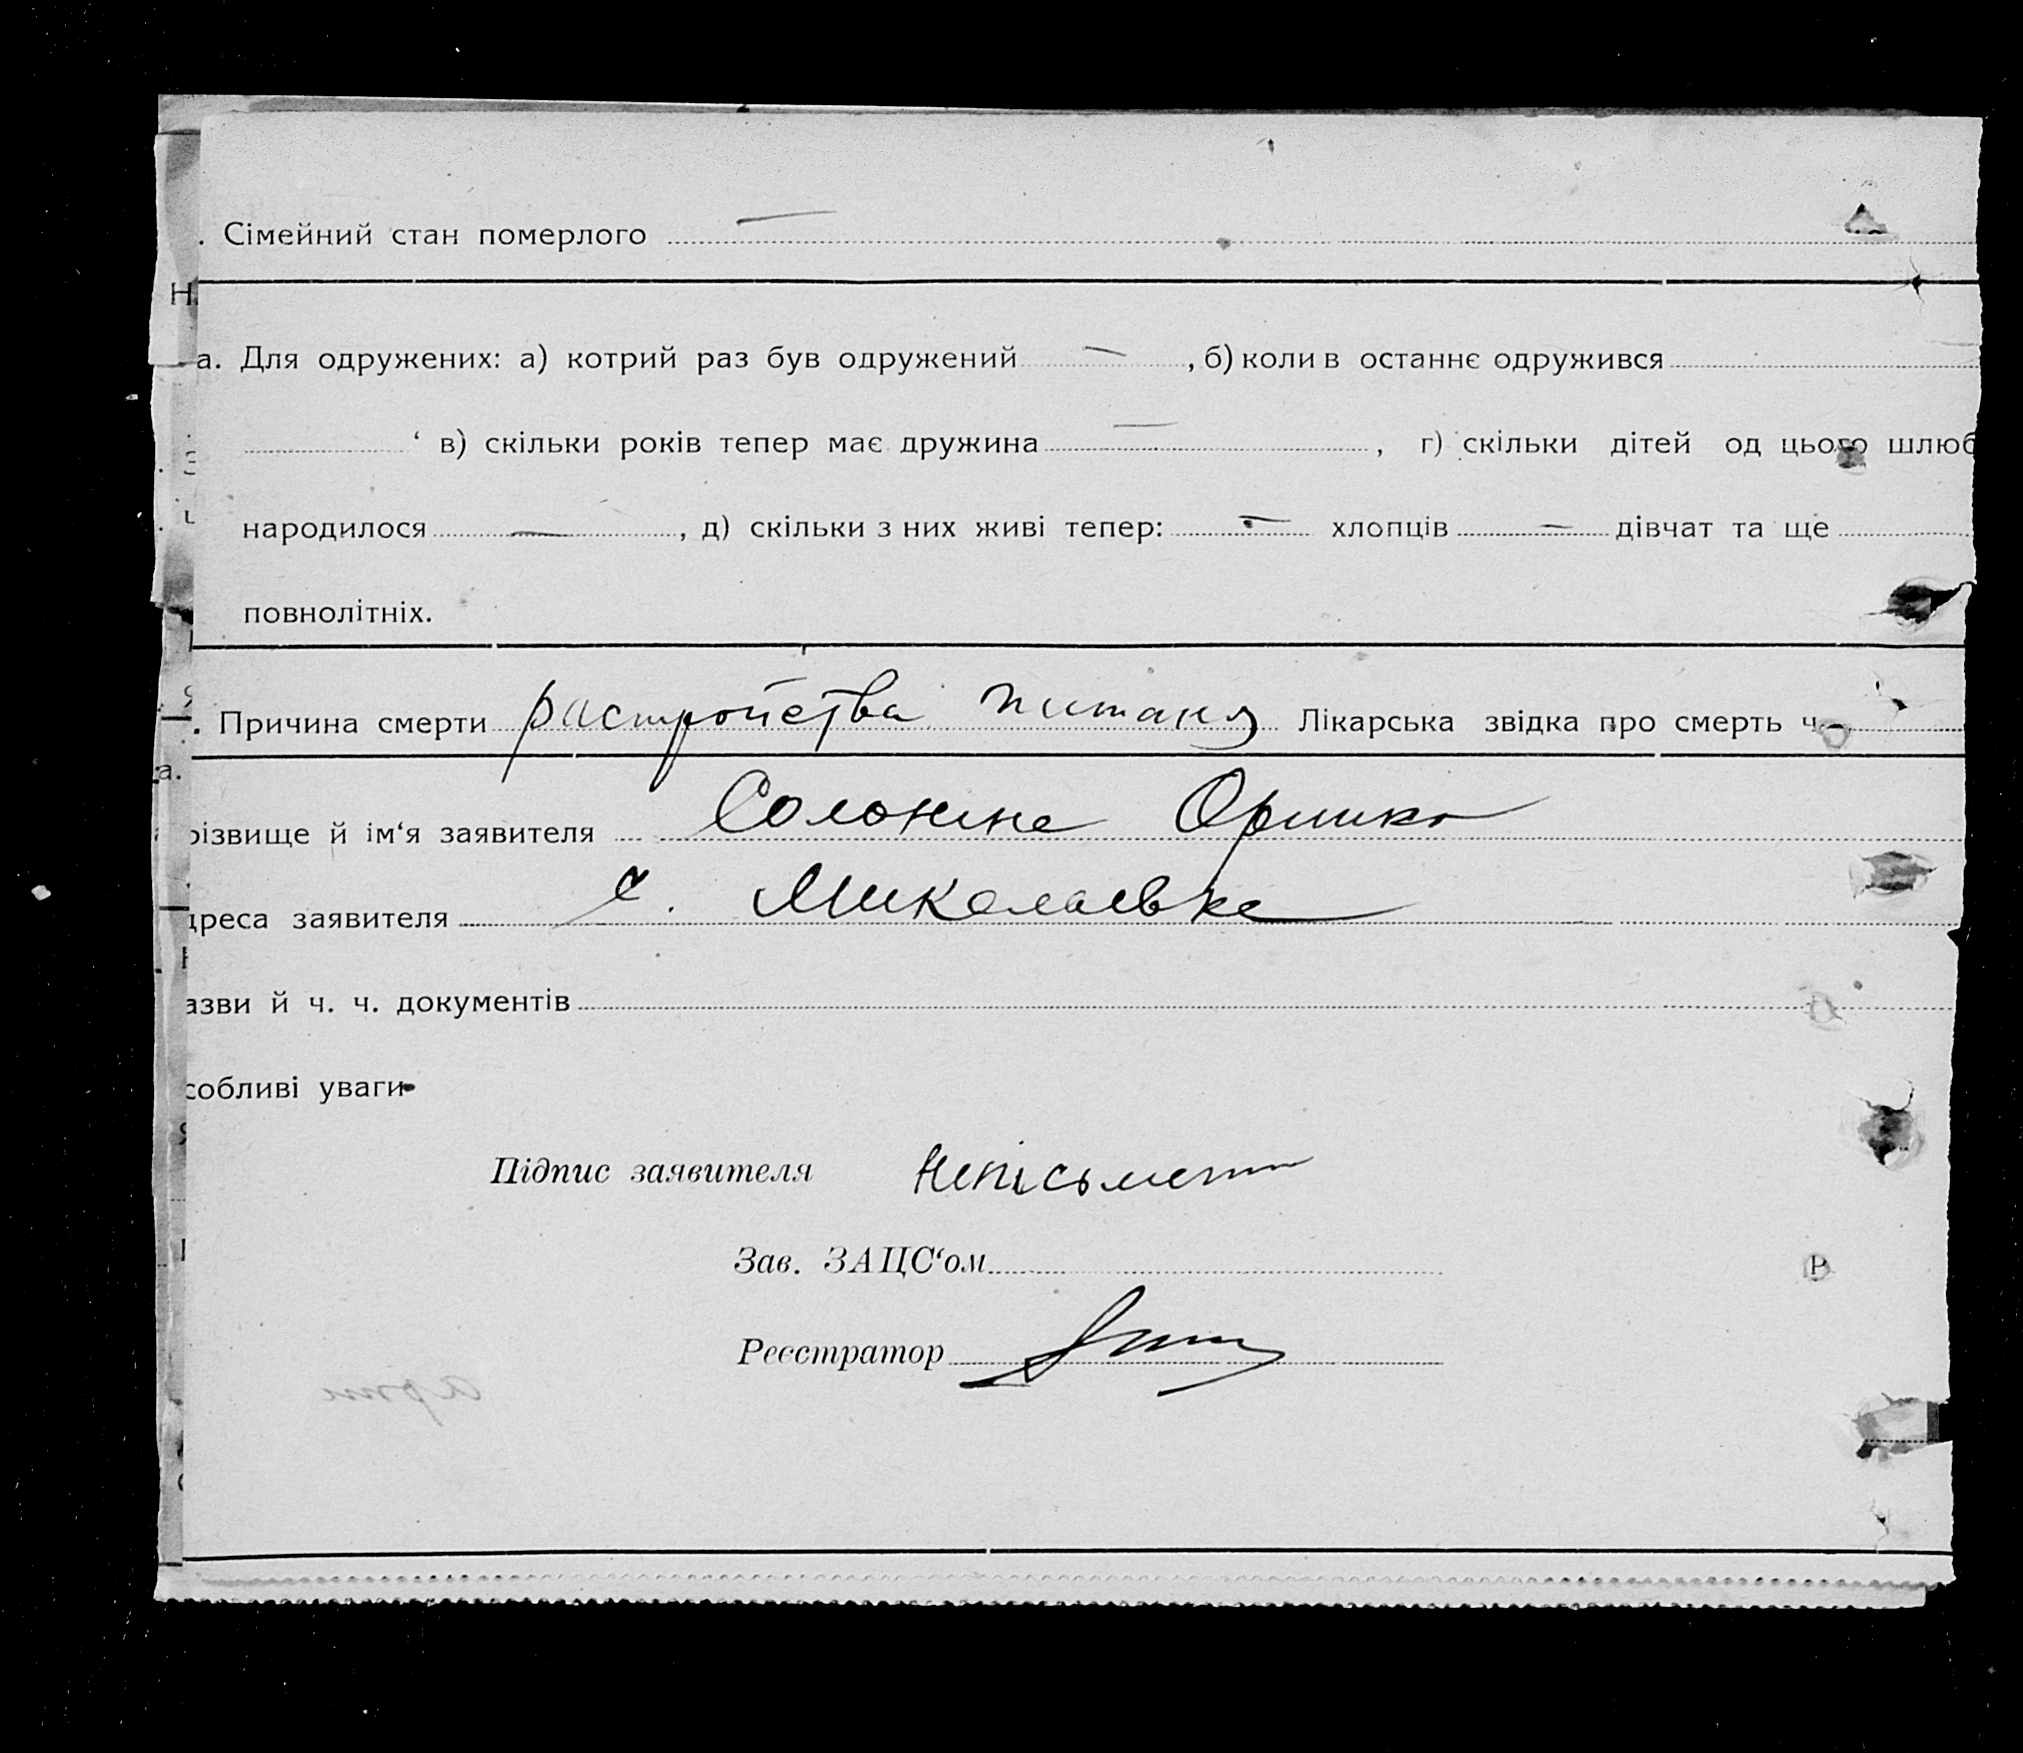 . Сімейний стан померлого —
а. Для одружених: а) котрий раз був одружений — , б) коли в останнє одружився
‘ в) скільки років тепер має дружина — , г) скільки дітей од цього шлюб
народилося — , д) скільки з них живі тепер: — хлопців — дівчат та ще
повнолітніх.
. Причина смерти растройства питаня Лікарська звідка про смерть ч.
різвище й ім‘я заявителя Солонина Оришка
дреса заявителя с. Миколаевка
азви й ч. ч. документів
собливі уваги
Підпис заявителя непісьмен
Зав. ЗАЦС‘ом
Реєстратор